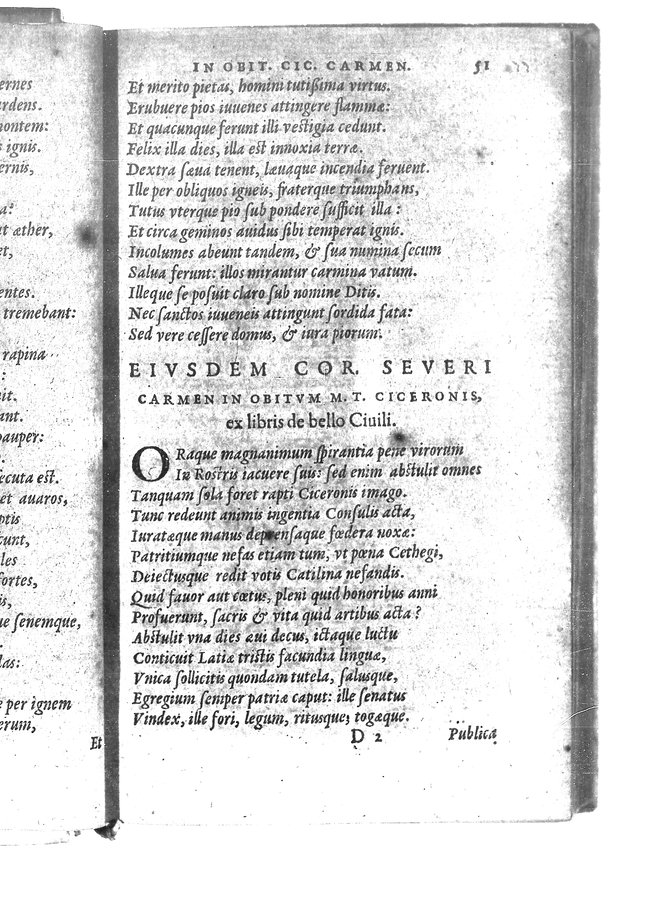 ernes
ardens.
montem:
ignis.
ernis,
a:
ut æther,
et,
entes.
tremebant:
rapina
:
it.
ant.
pauper:
ecuta est.
et auaros,
ptis
cunt,
les
fortes,
is,
ue senemque,
las:
e per ignem
erum,
Et
IN OBIT. CIC. CARMEN. 51
Et merito pietas, homini tutißima virtus.
Erubuere pios iuuenes attingere flammæ:
Et quacunque ferunt illi vestigia cedunt.
Felix illa dies, illa est innoxia terræ.
Dextra sæua tenent, læuaque incendia feruent.
Ille per obliquos igneis, fraterque triumphans,
Tutus vterque pio sub pondere sufficit illa :
Et circa geminos auidus sibi temperat ignis.
Incolumes abeunt tandem, & sua numina secum
Salua ferunt: illos mirantur carmina vatum.
Illeque se posuit claro sub nomine Ditis.
Nec sanctos iuueneis attingunt sordida fata:
Sed vere cessere domus, & iura piorum.
EIVSDEM COR. SEVERI
CARMEN IN OBITVM M. T. CICERONIS,
ex libris de bello Ciuili.
ORaque magnanimum spirantia pene virorum
In Rostris iacuere suis: sed enim abstulit omnes
Tanquam sola foret rapti Ciceronis imago.
Tunc redeunt animis ingentia Consulis acta,
Iuratæque manus deprensaque fœdera noxæ:
Patritiumque nefas etiam tum, vt pœna Cethegi,
Deiectusque redit votis Catilina nefandis.
Quid fauor aut cœtus, pleni quid honoribus anni
Profuerunt, sacris & vita quid artibus acta ?
Abstulit vna dies æui decus, ictaque luctu
Conticuit Latiæ tristis facundia linguæ,
Vnica sollicitis quondam tutela, salusque,
Egregium semper patriæ caput: ille senatus
Vindex, ille fori, legum, ritusque; togæque.
D 2 Publica